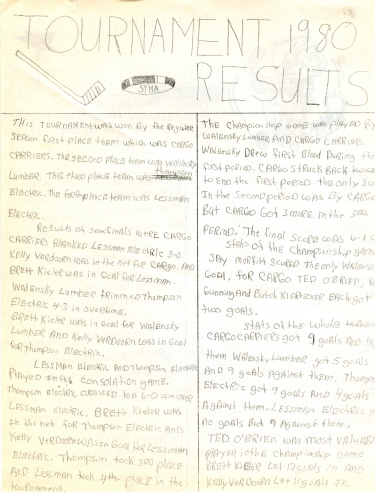 TOURNAMENT 1980
RESULTS
SYHA
THIS TOURNAMENT WAS WON BY the REGULAR
SEASON first PLACE team which was CARGO
CARRIERS. The SECOND PLACE team was WALENSKY
Lumber. The third PLACE team was Thompson
Electric. The forth PLACE team was LESSMAN
Electric.
Results of semifinals were CARGO
CARRIERS BLANKED LESSMAN Electric 3-0.
Kelly VERDOORN was in the net for CARGO. AND
BREtt Kieler was in Goal for LESSMAN.
WALENSKY Lumber trimmed Thompson
Electric 4-3 in overtime.
BREtt Kieler was in Goal for WALENSKY
Lumber AND Kelly VERDOORN was in Goal
for Thompson Electric.
LESSMAN Electric AND Thompson Electric
PLAYED in the CONSOLATION GAME.
Thompson Electric cruised to a 6-0 win over
LESSMAN Electric. BREtt Kieler was
in the net for Thompson Electric AND
Kelly VERDOORN was in Goal for LESSMAN
Electric. Thompson took 3RD PLACE
AND LESSMAN took 4th PLACE in the
tournament.
The Championship GAME WAS PLAYED BY
WALENSKY Lumber AND CARGO CARRIERS.
WALENSKY DREW first BLOOD During the
first PERIOD. CARGO STRUCK BACK twice
to END the first PERIOD. The only
In the second PERIOD was BY CARGO
But CARGO Got 3 more in the 3RD
PERIOD. The final score was 6-1
stats of the Championship game
JAY scored The only
GOAL, for CARGO TED O'BRIEN,
Gunning AND Butch each got
two goals.
stats of the whole
CARGO CARRIERS got 9 goals AND
them WALENSKY Lumber got 5 goals
AND 9 goals Against them. Thompson
Electric got 9 goals AND 4 goals
Against them. LESSMAN Electric
no goals But 9 Against them.
TED O'BRIEN was most VALUABLE
PLAYER in the championship game
BREtt Kieler Let 12 goals in AND
Kelly VERDOORN Let 11 goals in